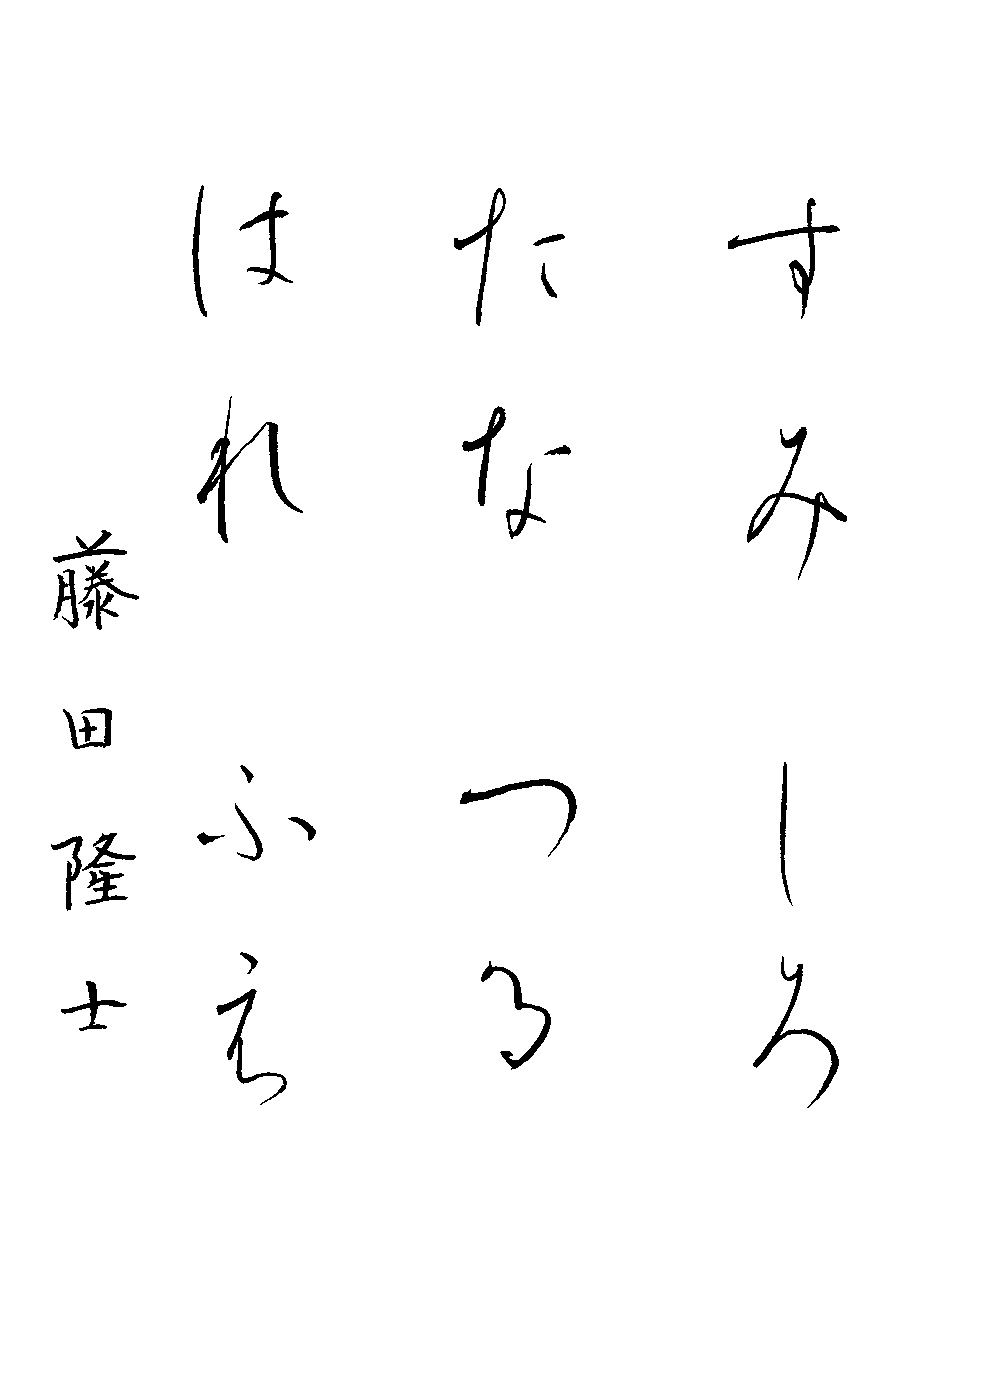 すみ しろ
たな つる
はれ ふえ
藤田隆士